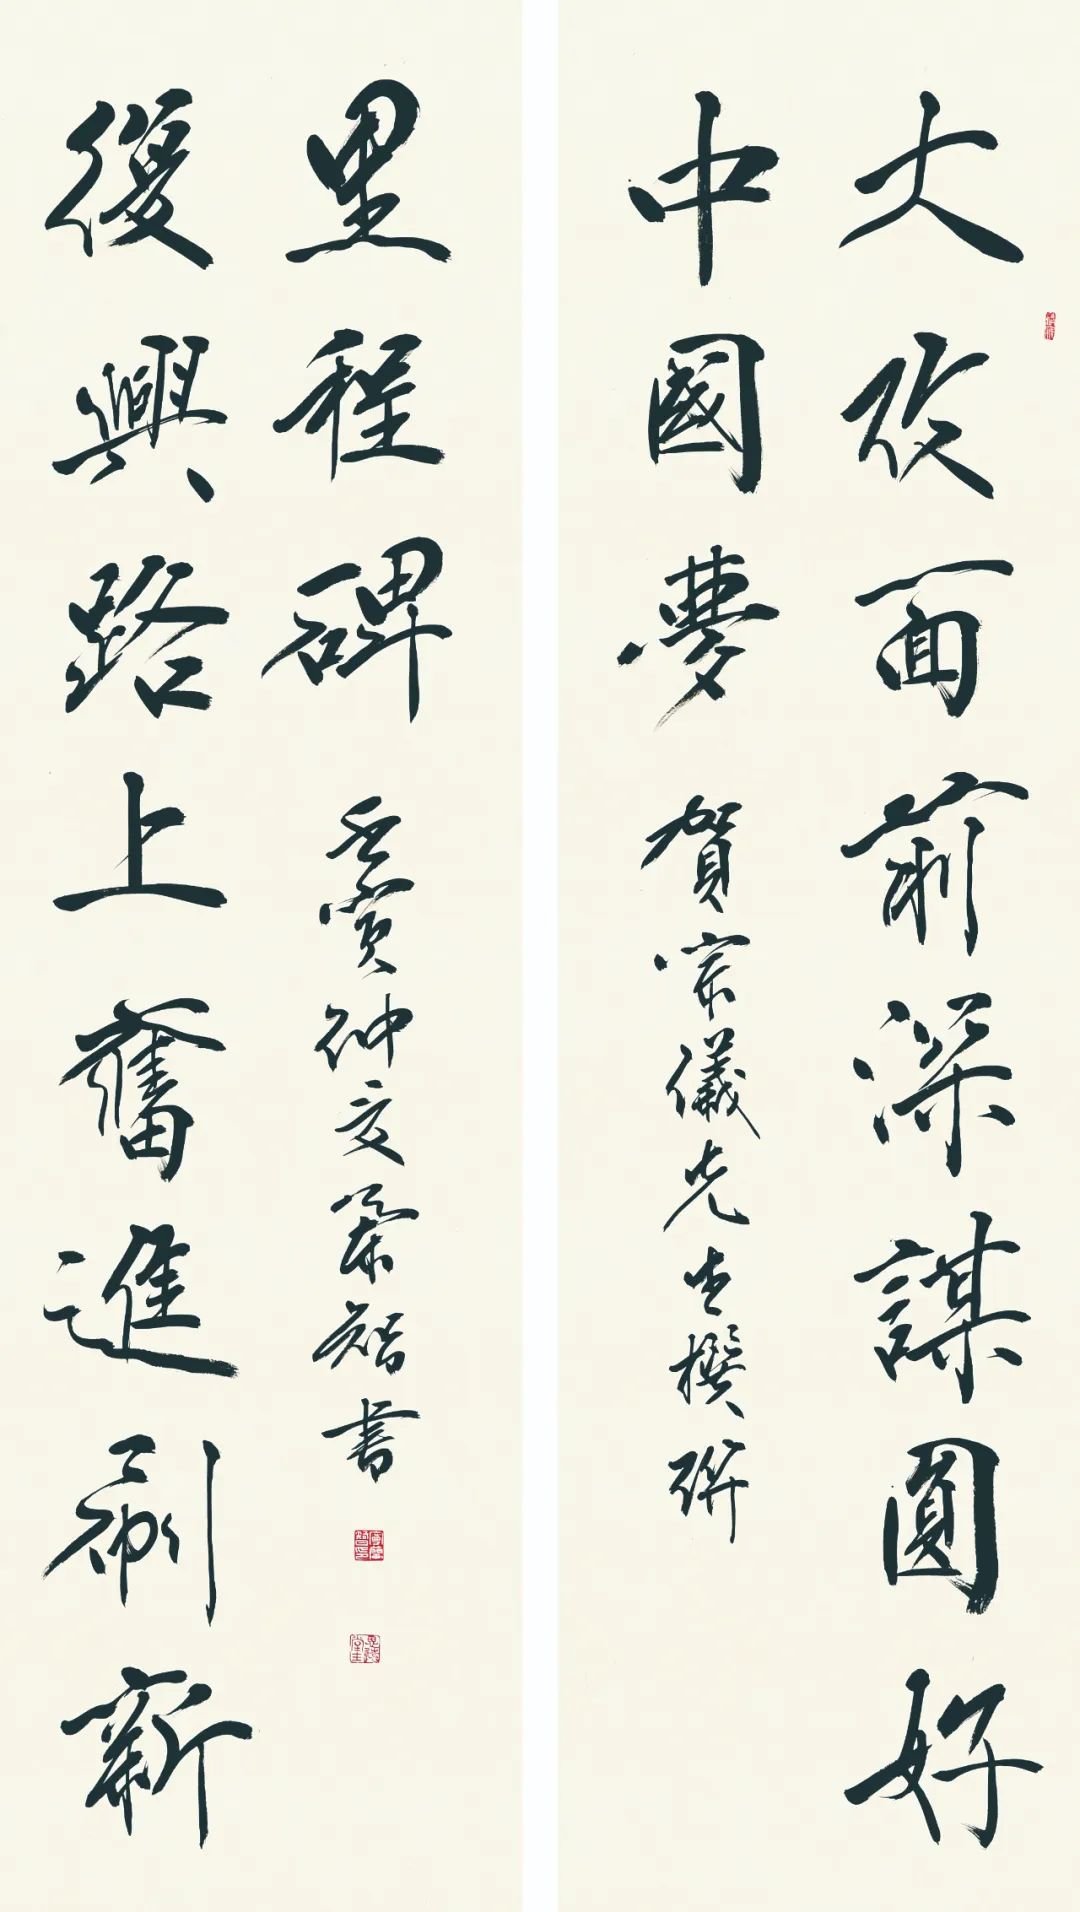 大攷面前深謀圓好
中國夢
賀宗儀先生撰聯
復興路上奮進創新
里程碑
壬寅仲夏智書